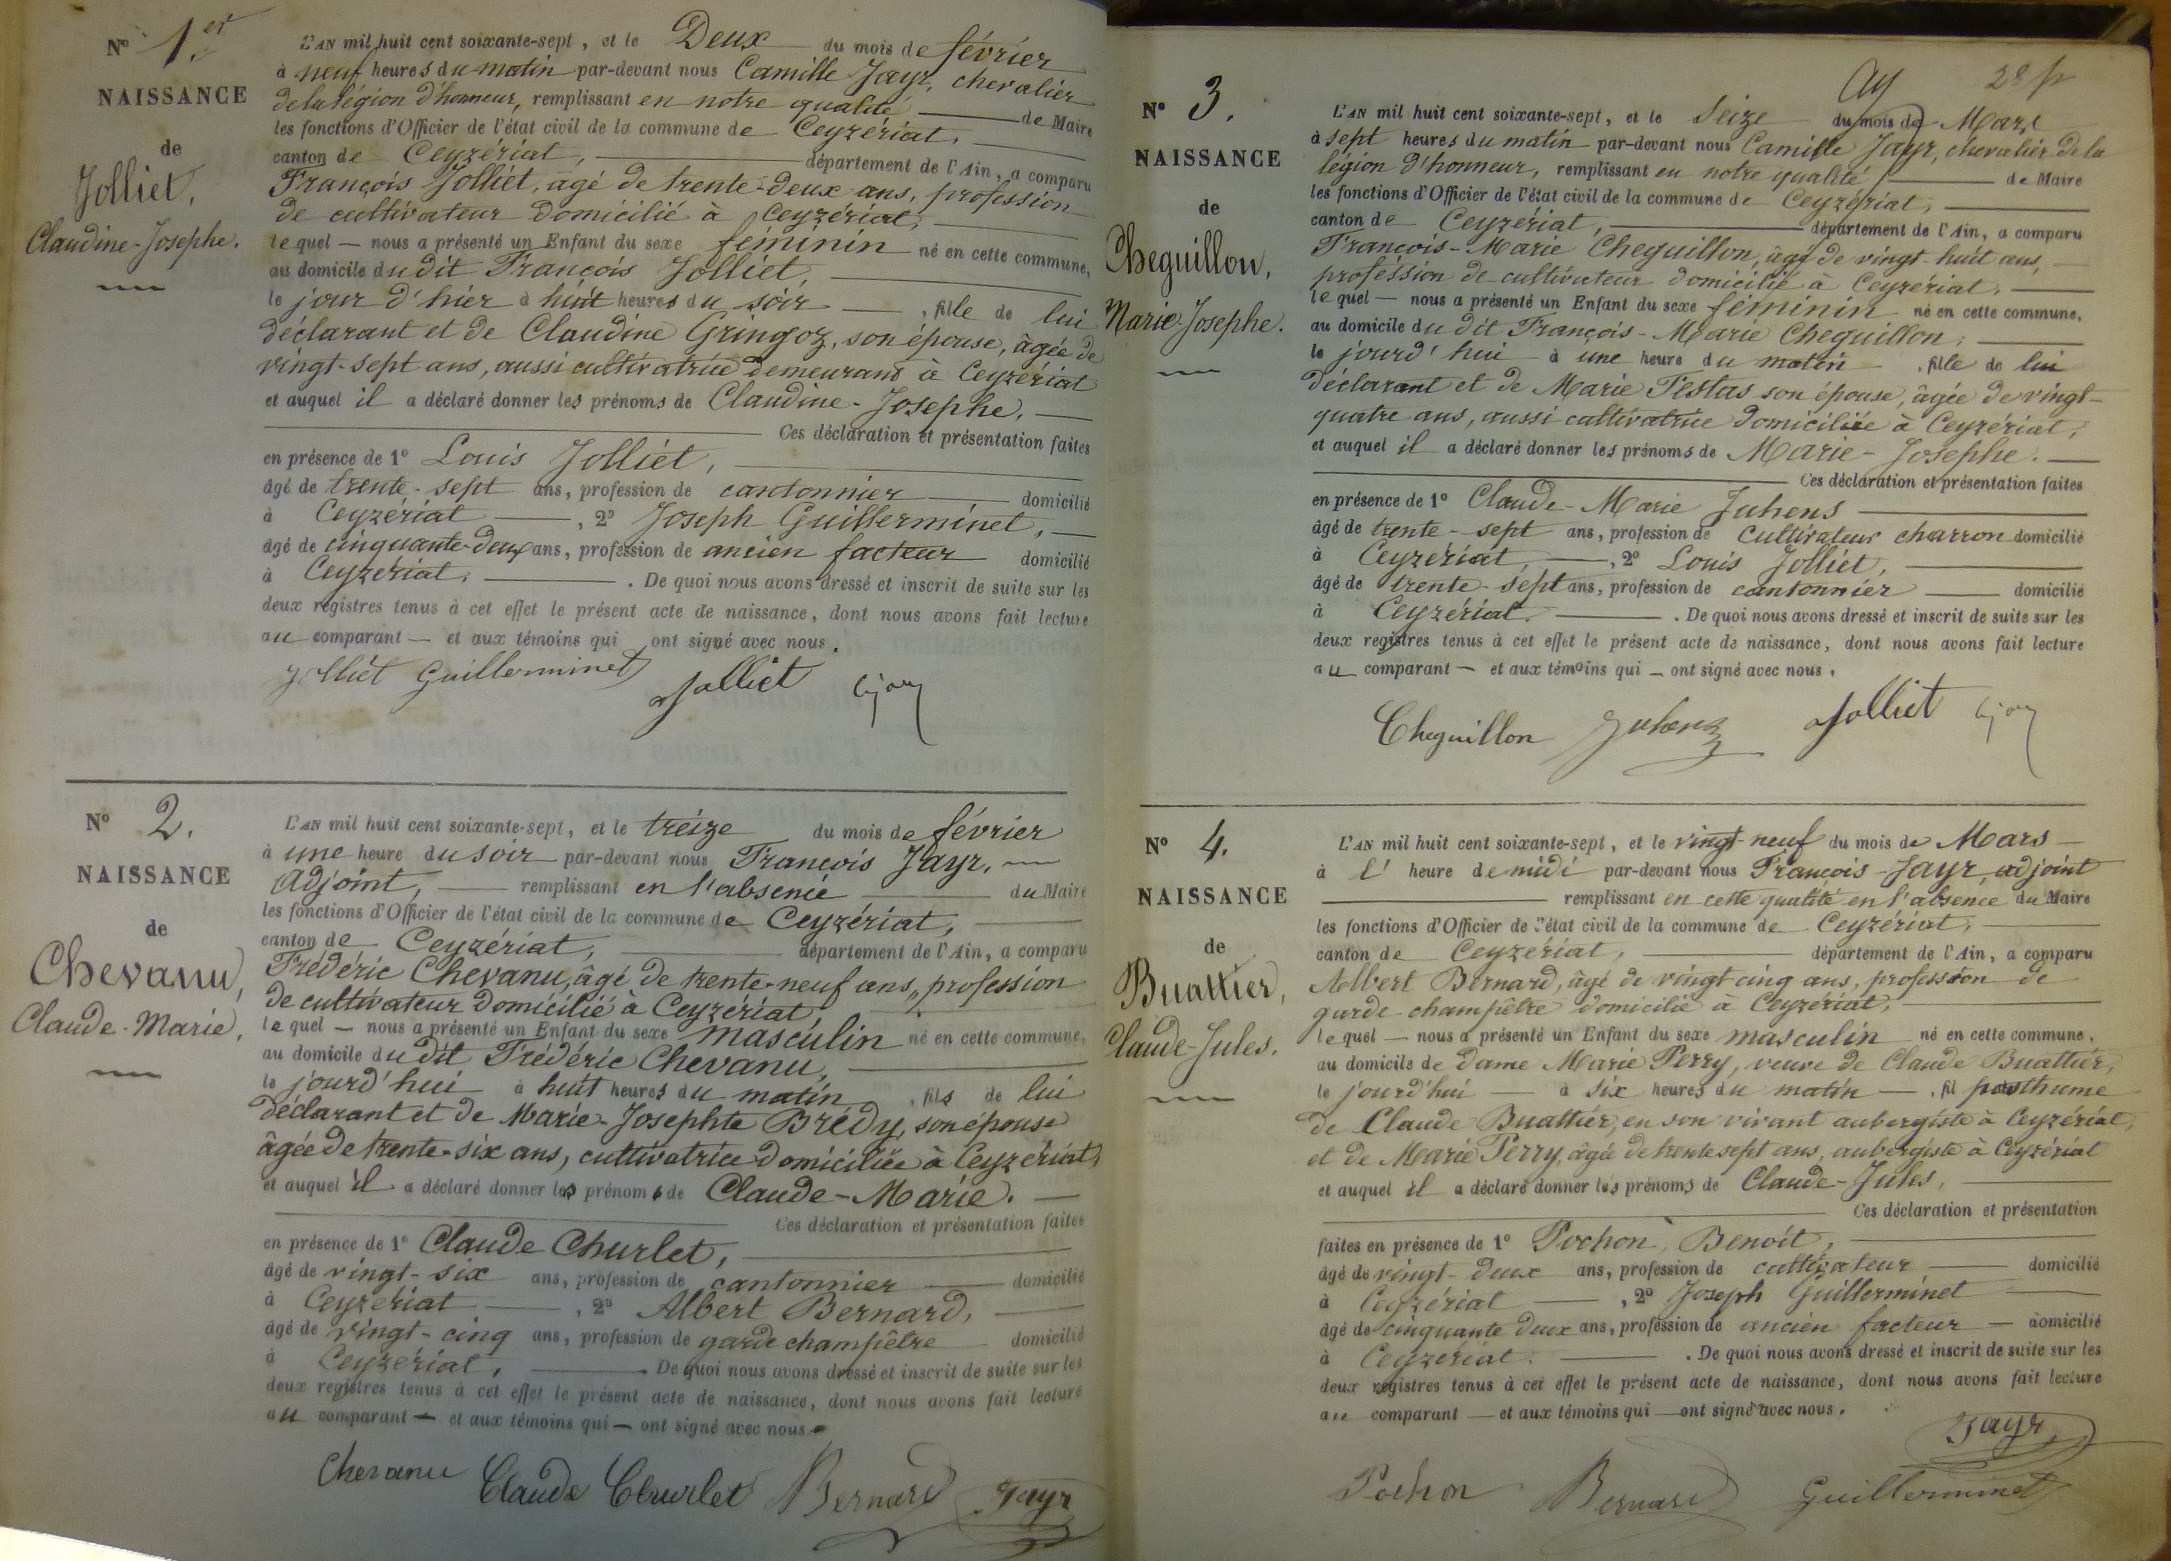 N° 1.er
NAISSANCE
de
Jolliet,
Claudine-Josephe.
L'AN mil huit cent soixante-sept, et le Deux du mois de février
à neuf heures du matin par-devant nous Camille Jayr, chevalier
de la légion d'honneur, remplissant en notre qualité de Maire
les fonctions d'Officier de l'état civil de la commune de Ceyzériat,
canton de Ceyzériat, département de l'Ain, a comparu
François Jolliet, âgé de trente-deux ans, profession
de cultivateur domicilié à Ceyzériat,
lequel — nous a présenté un Enfant du sexe féminin né en cette commune,
au domicile du dit François Jolliet,
le jour d'hier à huit heures du soir , fille de lui
déclarant et de Claudine Gringoz, son épouse, âgée de
vingt-sept ans, aussi cultivatrice demeurant à Ceyzériat
et auquel il a déclaré donner les prénoms de Claudine-Josephe.
Ces déclaration et présentation faites
en présence de 1° Louis Jolliet,
âgé de trente-sept ans, profession de cantonnier domicilié
à Ceyzériat , 2° Joseph Guillerminet,
âgé de cinquante-deux ans, profession de ancien facteur domicilié
à Ceyzériat. . De quoi nous avons dressé et inscrit de suite sur les
deux registres tenus à cet effet le présent acte de naissance, dont nous avons fait lecture
au comparant — et aux témoins qui ont signé avec nous.
Jolliet Guillerminet Jolliet Cjayr
N° 2.
NAISSANCE
de
Chevanu,
Claude-Marie,
L'AN mil huit cent soixante-sept, et le treize du mois de février
à une heure du soir par-devant nous François Jayr,
Adjoint, remplissant en l'absence du Maire
les fonctions d'Officier de l'état civil de la commune de Ceyzériat,
canton de Ceyzériat, département de l'Ain, a comparu
Frédéric Chevanu, âgé de trente-neuf ans, profession
de cultivateur domicilié à Ceyzériat,
lequel — nous a présenté un Enfant du sexe masculin né en cette commune,
au domicile du dit Frédéric Chevanu,
le jourd'hui à huit heures du matin , fils de lui
déclarant et de Marie-Josephte Brédy, son épouse
âgée de trente-six ans, cultivatrice domiciliée à Ceyzériat,
et auquel il a déclaré donner les prénoms de Claude-Marie.
Ces déclaration et présentation faites
en présence de 1° Claude Churlet,
âgé de vingt-six ans, profession de cantonnier domicilié
à Ceyzériat , 2° Albert Bernard,
âgé de vingt-cinq ans, profession de garde champêtre domicilié
à Ceyzériat, De quoi nous avons dressé et inscrit de suite sur les
deux registres tenus à cet effet le présent acte de naissance, dont nous avons fait lecture
au comparant — et aux témoins qui — ont signé avec nous
Chevanu Claude Churlet Bernard Jayr
28
N° 3.
NAISSANCE
de
Cheguillon,
Marie-Josephe.
L'AN mil huit cent soixante-sept, et le Seize du mois de Mars
à sept heures du matin par-devant nous Camille Jayr, chevalier de la
légion d'honneur, remplissant en notre qualité de Maire
les fonctions d'Officier de l'état civil de la commune de Ceyzériat,
canton de Ceyzériat, département de l'Ain, a comparu
François-Marie Cheguillon, âgé de vingt-huit ans,
profession de cultivateur domicilié à Ceyzériat,
lequel — nous a présenté un Enfant du sexe féminin né en cette commune,
au domicile du dit François-Marie Cheguillon,
le jourd'hui à une heure du matin , fille de lui
déclarant et de Marie Testas son épouse, âgée de vingt-
quatre ans, aussi cultivatrice domiciliée à Ceyzériat,
et auquel il a déclaré donner les prénoms de Marie-Josephe.
Ces déclaration et présentation faites
en présence de 1° Claude-Marie Juhens
âgé de trente-sept ans, profession de cultivateur charron domicilié
à Ceyzériat, , 2° Louis Jolliet,
âgé de trente-sept ans, profession de cantonnier domicilié
à Ceyzériat. . De quoi nous avons dressé et inscrit de suite sur les
deux registres tenus à cet effet le présent acte de naissance, dont nous avons fait lecture
au comparant — et aux témoins qui — ont signé avec nous.
Cheguillon Juhens Jolliet Cjayr
N° 4.
NAISSANCE
de
Buattier,
Claude-Jules.
L'AN mil huit cent soixante-sept, et le vingt-neuf du mois de Mars
à l' heure de midi par-devant nous François Jayr, adjoint
remplissant en cette qualité en l'absence du Maire
les fonctions d'Officier de l'état civil de la commune de Ceyzériat,
canton de Ceyzériat, département de l'Ain, a comparu
Albert Bernard, âgé de vingt cinq ans, profession de
garde-champêtre domicilié à Ceyzériat,
lequel — nous a présenté un Enfant du sexe masculin né en cette commune.
au domicile de dame Marie Perry, veuve de Claude Buattier,
le jourd'hui à six heures du matin , fil posthume
de Claude Buattier, en son vivant aubergiste à Ceyzériat,
et de Marie Perry, âgée de trente sept ans, aubergiste à Ceyzériat
et auquel il a déclaré donner les prénoms de Claude-Jules,
Ces déclaration et présentation
faites en présence de 1° Pochon, Benoît,
âgé de vingt-deux ans, profession de cultivateur domicilié
à Ceyzériat , 2° Joseph Guillerminet
âgé de cinquante deux ans, profession de ancien facteur domicilié
à Ceyzériat. . De quoi nous avons dressé et inscrit de suite sur les
deux registres tenus à cet effet le présent acte de naissance, dont nous avons fait lecture
au comparant — et aux témoins qui — ont signé avec nous.
Jayr
Pochon Bernard Guillerminet